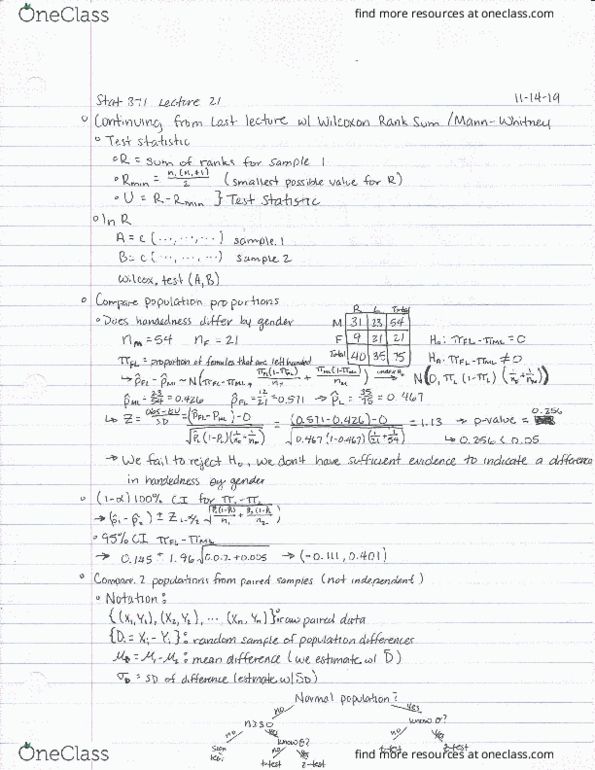 OneClass
find more resources at oneclass.com
Stat 371 Lecture 21
11-14-19
Continuing from last lecture w/ Wilcoxon Rank Sum / Mann-Whitney
Test statistic
R = Sum of ranks for sample 1
Rmin = n₁(n₁+1)/2 (smallest possible value for R)
U = R - Rmin } Test Statistic
In R
A = c(..., ..., ...) sample 1
B = c(..., ..., ...) sample 2
wilcox.test (A, B)
Compare population proportions
R L Total
Does handedness differ by gender
M 31 23 54
n_M = 54 n_F = 21
F 9 21
H₀: π_FL - π_ML = 0
Total 40 35 75
π_FL = proportion of females that are left handed
H_A: π_FL - π_ML ≠ 0
p̂_ML = 23/54 = 0.426 p̂_FL = 12/21 = 0.571 → p̂_L = 35/75 = 0.467
Z = = (p̂_FL - p̂_ML) - 0 = (0.571 - 0.426) - 0 = 1.13 → p-value = 0.256
√0.467(1-0.467)(1/21 + 1/54)
→ We fail to reject H₀, we don't have sufficient evidence to indicate a difference
in handedness by gender
(1-α)100% CI for π₁ - π₂
→ (p̂₁ - p̂₂) ± Z₁₋α/₂
95% CI π_FL - π_ML
→ 0.145 ± 1.96 → (-0.111, 0.401)
Compare 2 populations from paired samples (not independent)
Notation:
{(X₁,Y₁), (X₂,Y₂), ... (Xn,Yn)}: raw paired data
{Di = Xi - Yi}: random sample of population differences
μ_D = μ₁ - μ₂: mean difference (we estimate w/ D̄)
σ_D = SD of difference (estimate w/ S_D)
Normal population?
no yes
n≥30 know σ?
no yes no yes
know σ? t-test z-test
no yes
t-test z-test
OneClass
find more resources at oneclass.com